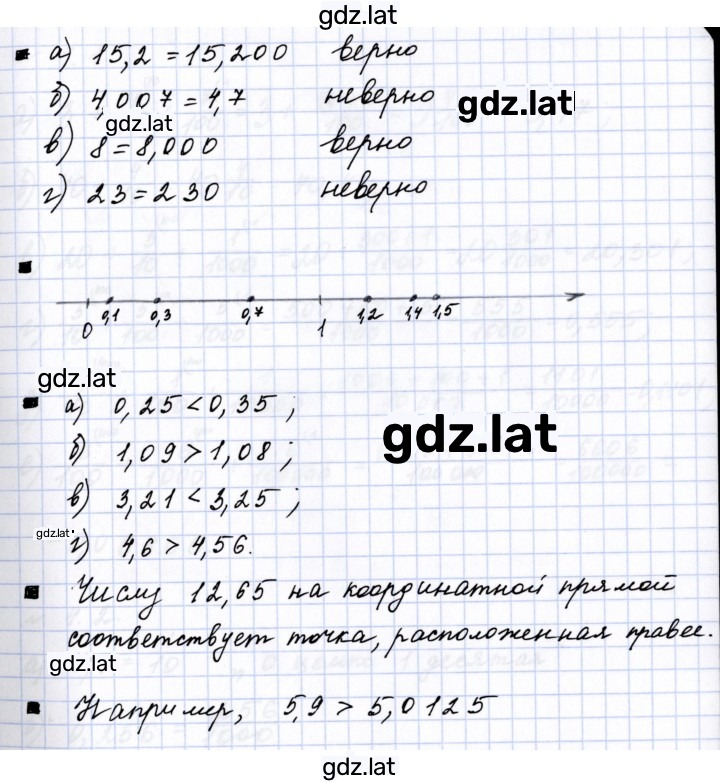 gdz.lat
а) 15,2 = 15,200 верно
б) 4,007 = 4,7 неверно gdz.lat
gdz.lat
в) 8 = 8,000 верно
г) 23 = 230 неверно
0 0,1 0,3 0,7 1 1,2 1,4 1,5
gdz.lat
а) 0,25 < 0,35 ;
gdz.lat
б) 1,09 > 1,08 ;
в) 3,21 < 3,25 ;
gdz.lat
г) 4,6 > 4,56.
Числу 12,65 на координатной прямой
соответствует точка, расположенная правее.
gdz.lat
Например, 5,9 > 5,0125
gdz.lat